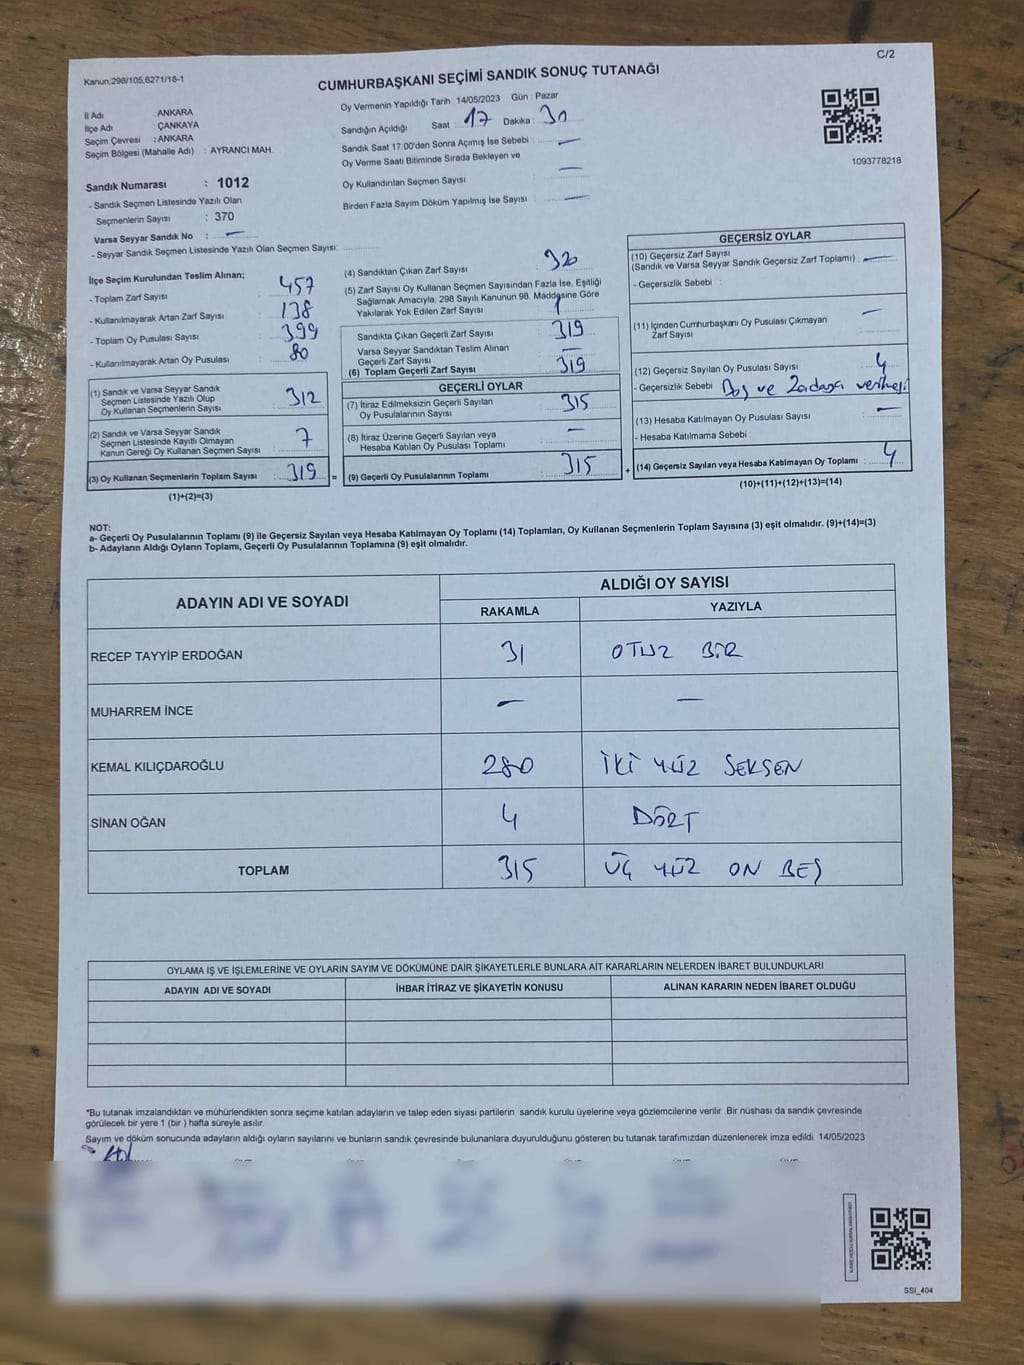 C/2
Kanun;298/105;6271/18-1
CUMHURBAŞKANI SEÇİMİ SANDIK SONUÇ TUTANAĞI
İl Adı : ANKARA
İlçe Adı : ÇANKAYA
Seçim Çevresi : ANKARA
Seçim Bölgesi (Mahalle Adı) : AYRANCI MAH.
Oy Vermenin Yapıldığı Tarih : 14/05/2023 Gün : Pazar
Sandığın Açıldığı Saat : 17 Dakika : 30
Sandık Saat 17:00'den Sonra Açımış İse Sebebi : —
Oy Verme Saati Bitiminde Sırada Bekleyen ve
Oy Kullandırılan Seçmen Sayısı —
Birden Fazla Sayım Döküm Yapılmış İse Sayısı —
1093778218
Sandık Numarası : 1012
- Sandık Seçmen Listesinde Yazılı Olan
Seçmenlerin Sayısı : 370
Varsa Seyyar Sandık No : —
- Seyyar Sandık Seçmen Listesinde Yazılı Olan Seçmen Sayısı:
İlçe Seçim Kurulundan Teslim Alınan;
- Toplam Zarf Sayısı : 457
- Kullanılmayarak Artan Zarf Sayısı : 138
- Toplam Oy Pusulası Sayısı : 399
- Kullanılmayarak Artan Oy Pusulası : 80
(1) Sandık ve Varsa Seyyar Sandık
Seçmen Listesinde Yazılı Olup
Oy Kullanan Seçmenlerin Sayısı : 312
(2) Sandık ve Varsa Seyyar Sandık
Seçmen Listesinde Kayıtlı Olmayan
Kanun Gereği Oy Kullanan Seçmen Sayısı : 7
(3) Oy Kullanan Seçmenlerin Toplam Sayısı : 319
(1)+(2)=(3)
(4) Sandıktan Çıkan Zarf Sayısı :
(5) Zarf Sayısı Oy Kullanan Seçmen Sayısından Fazla İse, Eşitliği
Sağlamak Amacıyla; 298 Sayılı Kanunun 98. Maddesine Göre
Yakılarak Yok Edilen Zarf Sayısı : 1
Sandıkta Çıkan Geçerli Zarf Sayısı : 319
Varsa Seyyar Sandıktan Teslim Alınan
Geçerli Zarf Sayısı : —
(6) Toplam Geçerli Zarf Sayısı : 319
GEÇERLİ OYLAR
(7) İtiraz Edilmeksizin Geçerli Sayılan
Oy Pusulalarının Sayısı : 315
(8) İtiraz Üzerine Geçerli Sayılan veya
Hesaba Katılan Oy Pusulası Toplamı : —
= (9) Geçerli Oy Pusulalarının Toplamı : 315
GEÇERSİZ OYLAR
(10) Geçersiz Zarf Sayısı
(Sandık ve Varsa Seyyar Sandık Geçersiz Zarf Toplamı) : —
- Geçersizlik Sebebi :
(11) İçinden Cumhurbaşkanı Oy Pusulası Çıkmayan
Zarf Sayısı : —
(12) Geçersiz Sayılan Oy Pusulası Sayısı : 4
- Geçersizlik Sebebi : Boş ve
(13) Hesaba Katılmayan Oy Pusulası Sayısı : —
- Hesaba Katılmama Sebebi :
+ (14) Geçersiz Sayılan veya Hesaba Katılmayan Oy Toplamı : 4
(10)+(11)+(12)+(13)=(14)
NOT:
a- Geçerli Oy Pusulalarının Toplamı (9) ile Geçersiz Sayılan veya Hesaba Katılmayan Oy Toplamı (14) Toplamları, Oy Kullanan Seçmenlerin Toplam Sayısına (3) eşit olmalıdır. (9)+(14)=(3)
b- Adayların Aldığı Oyların Toplamı, Geçerli Oy Pusulalarının Toplamına (9) eşit olmalıdır.
ADAYIN ADI VE SOYADI
ALDIĞI OY SAYISI
RAKAMLA YAZIYLA
RECEP TAYYİP ERDOĞAN 31 OTUZ BİR
MUHARREM İNCE — —
KEMAL KILIÇDAROĞLU 280 İKİ YÜZ SEKSEN
SİNAN OĞAN 4 DÖRT
TOPLAM 315 ÜÇ YÜZ ON BEŞ
OYLAMA İŞ VE İŞLEMLERİNE VE OYLARIN SAYIM VE DÖKÜMÜNE DAİR ŞİKAYETLERLE BUNLARA AİT KARARLARIN NELERDEN İBARET BULUNDUKLARI
ADAYIN ADI VE SOYADI İHBAR İTİRAZ VE ŞİKAYETİN KONUSU ALINAN KARARIN NEDEN İBARET OLDUĞU
*Bu tutanak imzalandıktan ve mühürlendikten sonra seçime katılan adayların ve talep eden siyasi partilerin sandık kurulu üyelerine veya gözlemcilerine verilir. Bir nüshası da sandık çevresinde
görülecek bir yere 1 (bir ) hafta süreyle asılır.
Sayım ve döküm sonucunda adayların aldığı oyların sayılarını ve bunların sandık çevresinde bulunanlara duyurulduğunu gösteren bu tutanak tarafımızdan düzenlenerek imza edildi. 14/05/2023
SSI_404